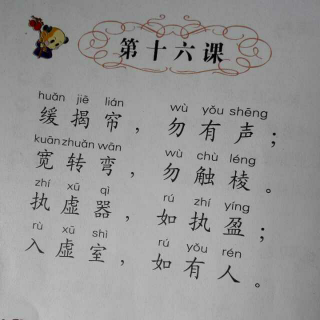 第十六课
huǎn jiē lián wù yǒu shēng
缓揭帘，勿有声；
kuān zhuǎn wān wù chù léng
宽转弯，勿触棱。
zhí xū qì rú zhí yíng
执虚器，如执盈；
rù xū shì rú yǒu rén
入虚室，如有人。